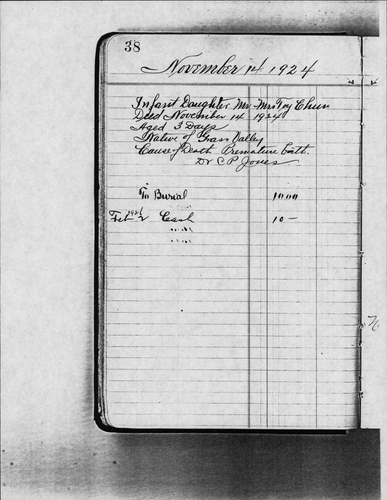 38
November 14 1924
Infant Daughter Mr Mrs Toy Chun
Died November 14 1924
Aged 3 Days
Native of Grass Valley
Cause of Death Premature birth
Dr C P Jones
To Burial 10.00
Feb 2 Cash 10 -